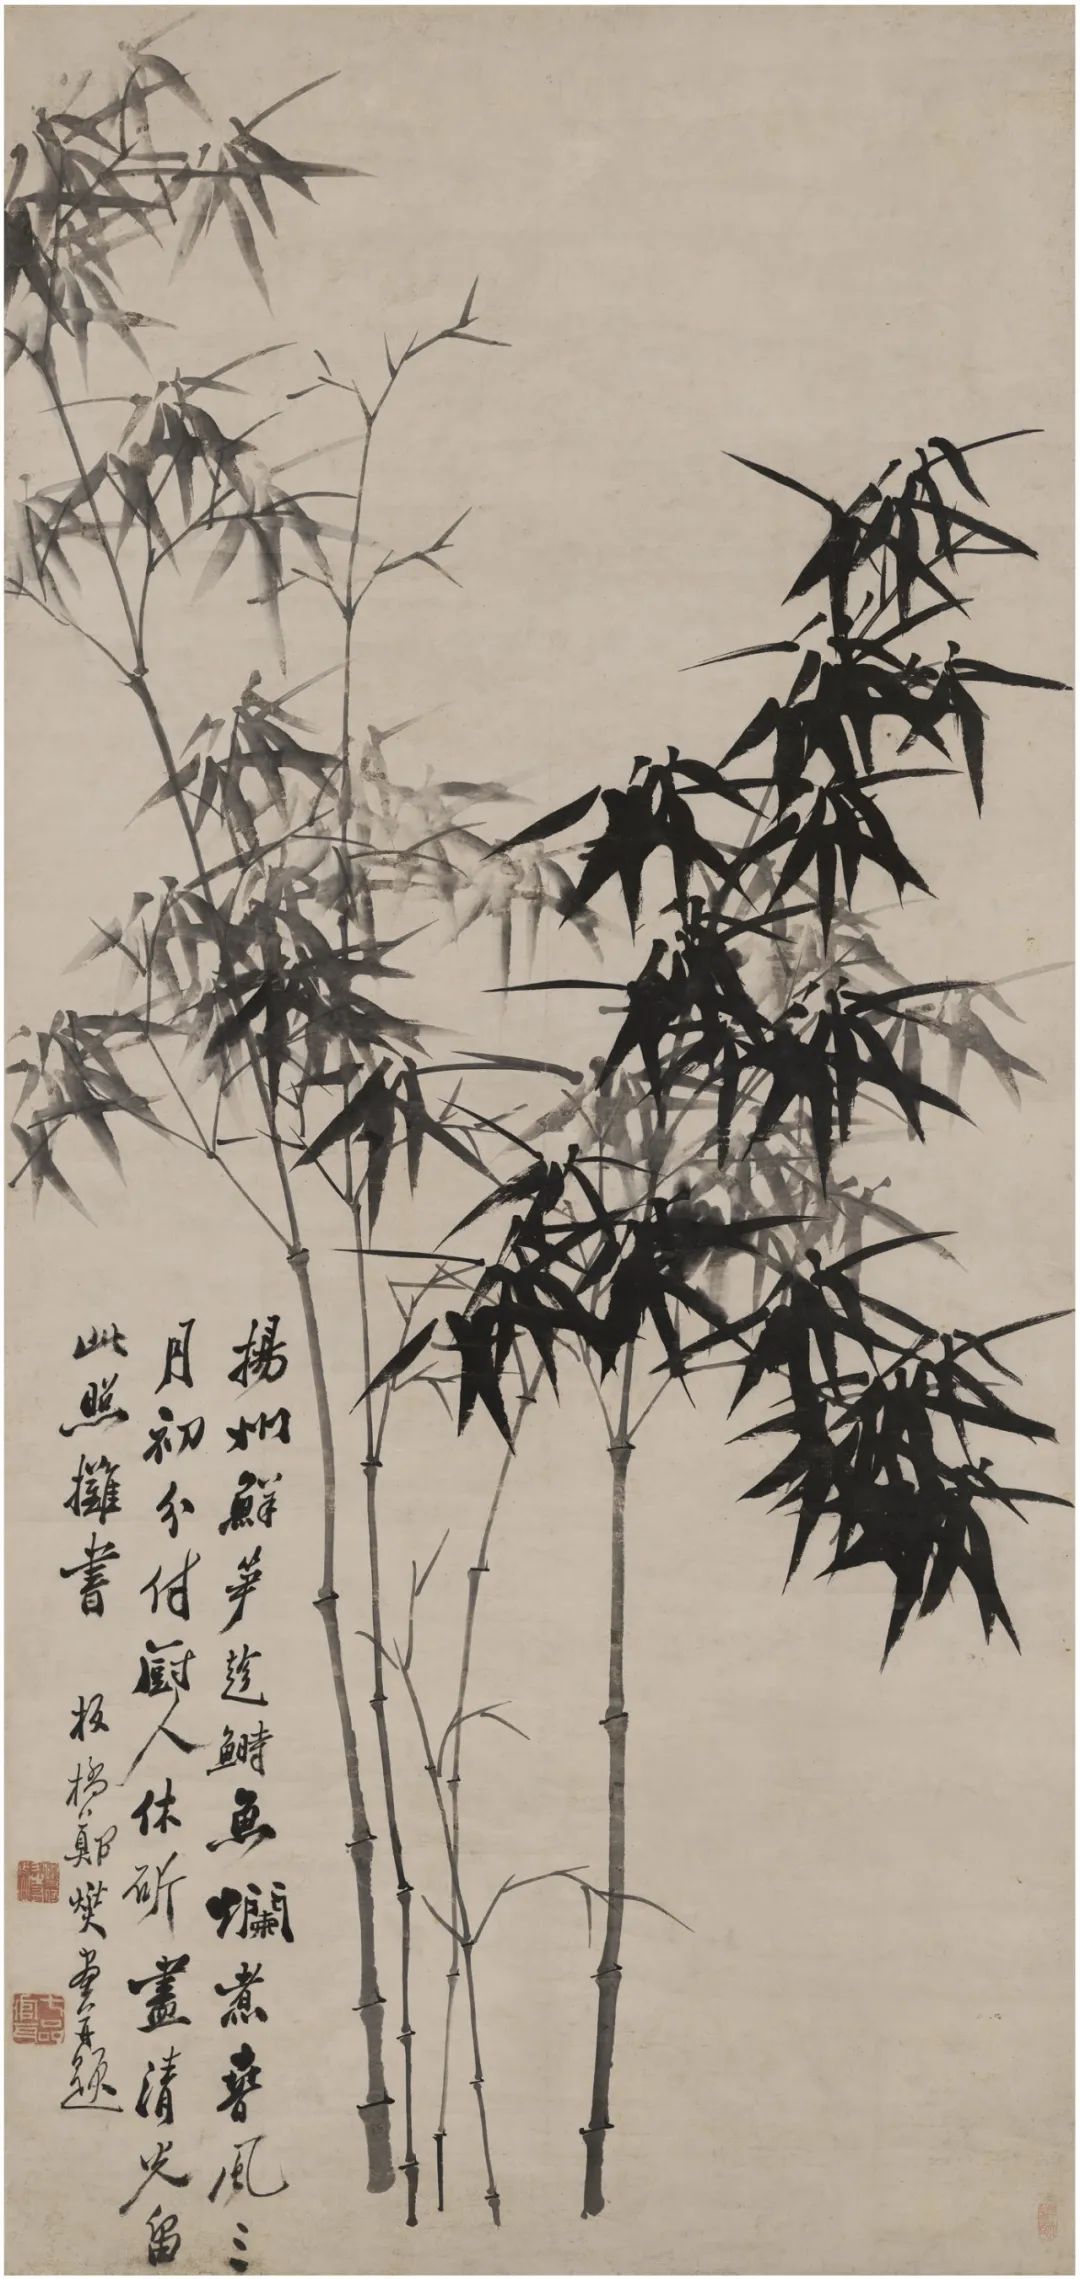 揚州鮮笋趁鰣魚爛煮春風三
月初分付厨人休斫盡清光留
此照攤書
板橋鄭燮畫并題
七品官耳